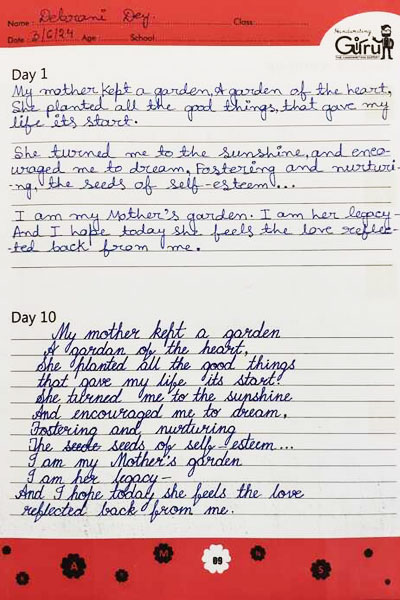 Name : Debrani Dey. Class :
Date : 3/6/24 Age : School :
Handwriting
Guru
THE HANDWRITING EXPERT
Day 1
My mother kept a garden, A garden of the heart,
She planted all the good things, that gave my
life its start.
She turned me to the sunshine, and enco-
uraged me to dream, Fostering and nurturi-
-ng, the seeds of self-esteem...
I am my Mother's garden. I am her legacy-
And I hope today she feels the love reflec-
-ted back from me.
Day 10
My mother kept a garden
A gardan of the heart,
She planted all the good things
that gave my life its start!
She turned me to the sunshine
And encouraged me to dream,
Fostering and nurturing
The seeds of self-esteem...
I am my Mother's garden
I am her legacy-
And I hope today she feels the love
reflected back from me.
A M 09 N S